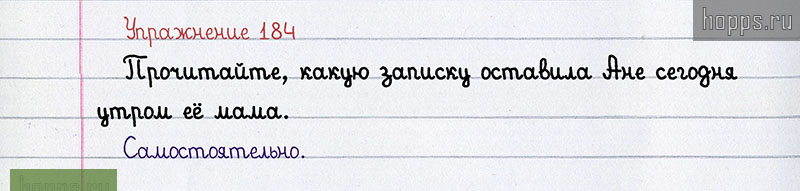 hopps.ru
Упражнение 184
Прочитайте, какую записку оставила Ане сегодня
утром её мама.
Самостоятельно.
hopps.ru